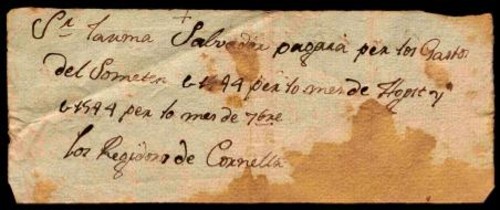 Sr. Iauma Salvador pagara per los Gastos
del Someten per lo mes de Agost y
per lo mes de 7bre
los Regidors de Cornella